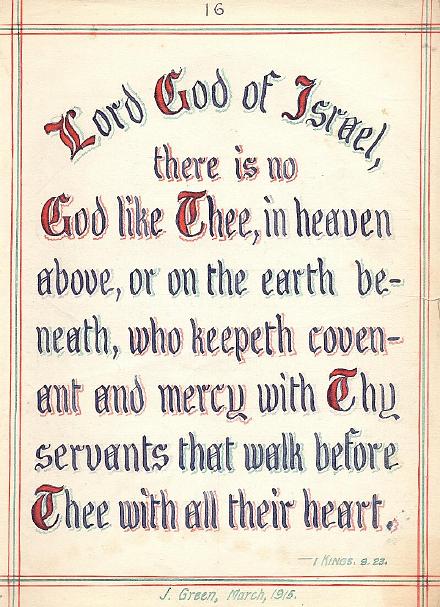 16
Lord God of Israel,
there is no
God like Thee, in heaven
above, or on the earth be-
neath, who keepeth coven-
ant and mercy with Thy
servants that walk before
Thee with all their heart.
— 1 Kings. 8. 23.
J. Green, March, 1915.